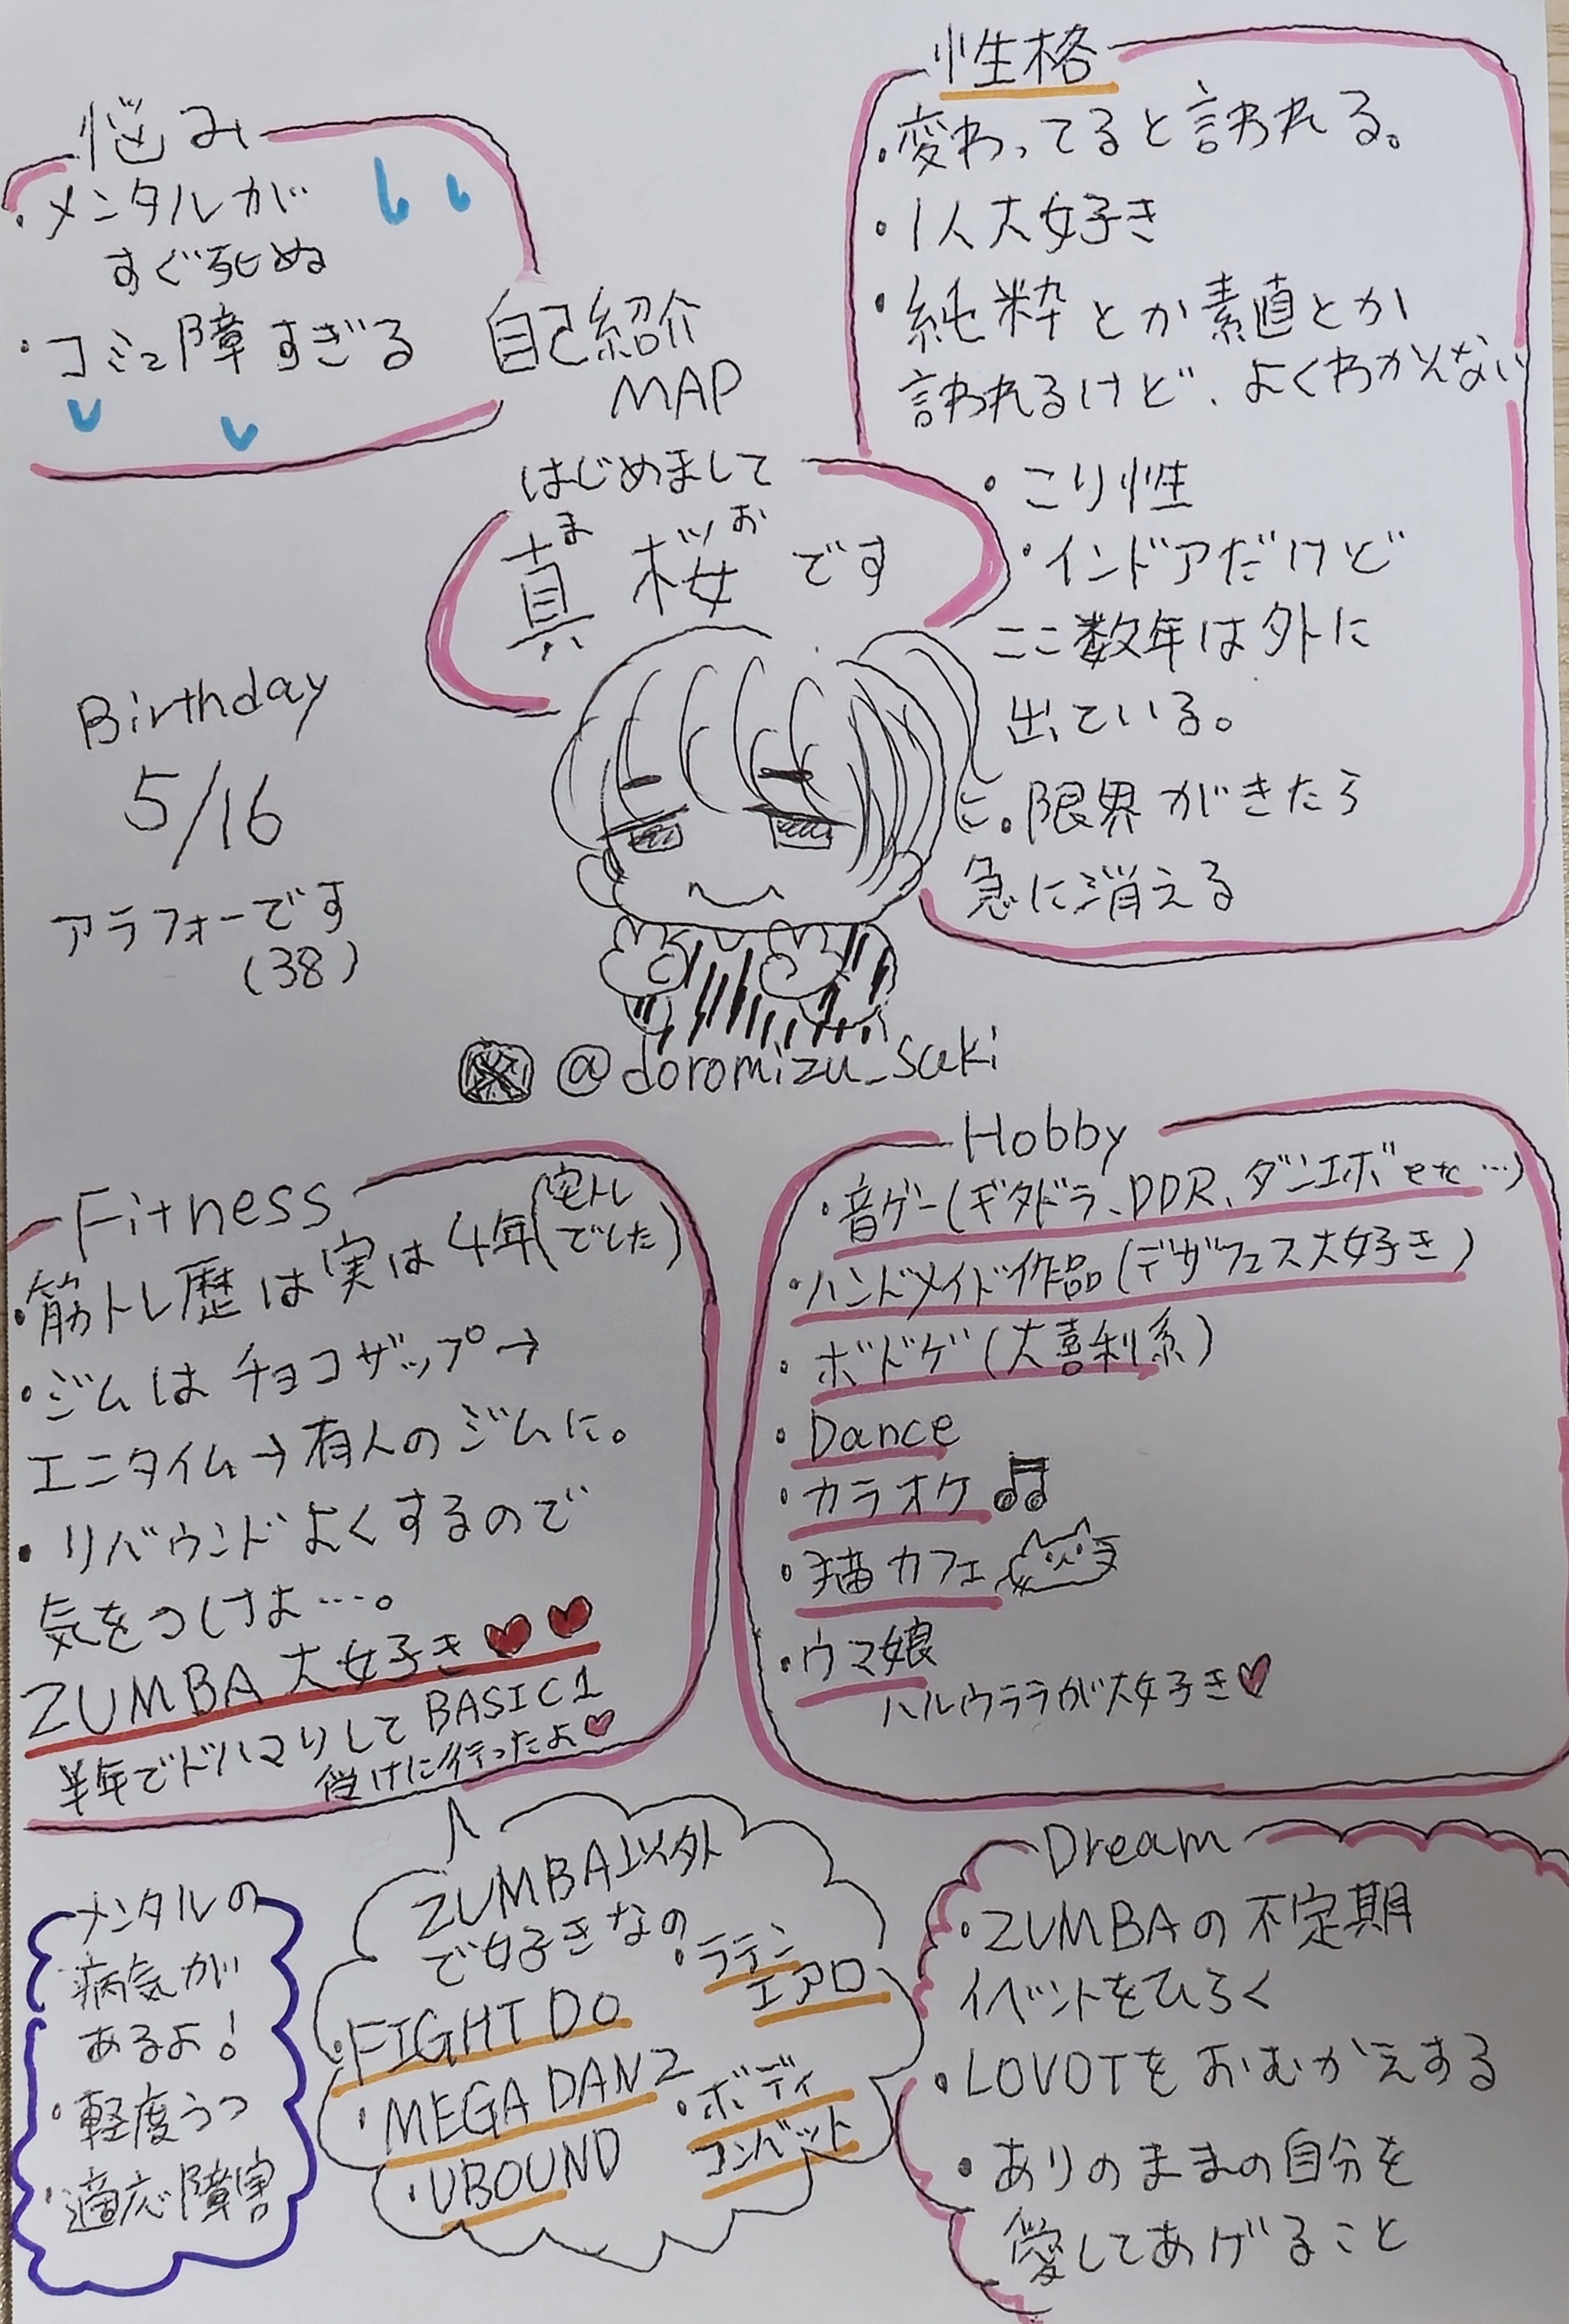 自己紹介
MAP
はじめまして
真桜です
ま お
悩み
・メンタルが
すぐ死ぬ
・コミュ障すぎる
性格
・変わってると言われる。
・1人大好き
・純粋とか素直とか
言われるけど、よくわかんない
・こり性
・インドアだけど
ここ数年は外に
出ている。
・限界がきたら
急に消える
Birthday
5/16
アラフォーです
(38)
X @doromizu_saki
Fitness
・筋トレ歴は実は4年(宅トレでした)
・ジムはチョコザップ→
エニタイム→有人のジムに。
・リバウンドよくするので
気をつけよ…。
ZUMBA大好き♥♥
半年でドハマりしてBASIC1
受けに行ったよ♥
Hobby
・音ゲー(ギタドラ、DDR、ダンエボetc…)
・ハンドメイド作品(デザフェス大好き)
・ボドゲ(大喜利系)
・Dance
・カラオケ♫
・猫カフェ
・ウマ娘
ハルウララが大好き♥
メンタルの
病気が
あるよ!
・軽度うつ
・適応障害
ZUMBA以外
で好きなの
・ラテン
エアロ
・FIGHT DO
・MEGA DANZ
・ボディ
コンバット
・UBOUND
Dream
・ZUMBAの不定期
イベントをひらく
・LOVOTをおむかえする
・ありのままの自分を
愛してあげること